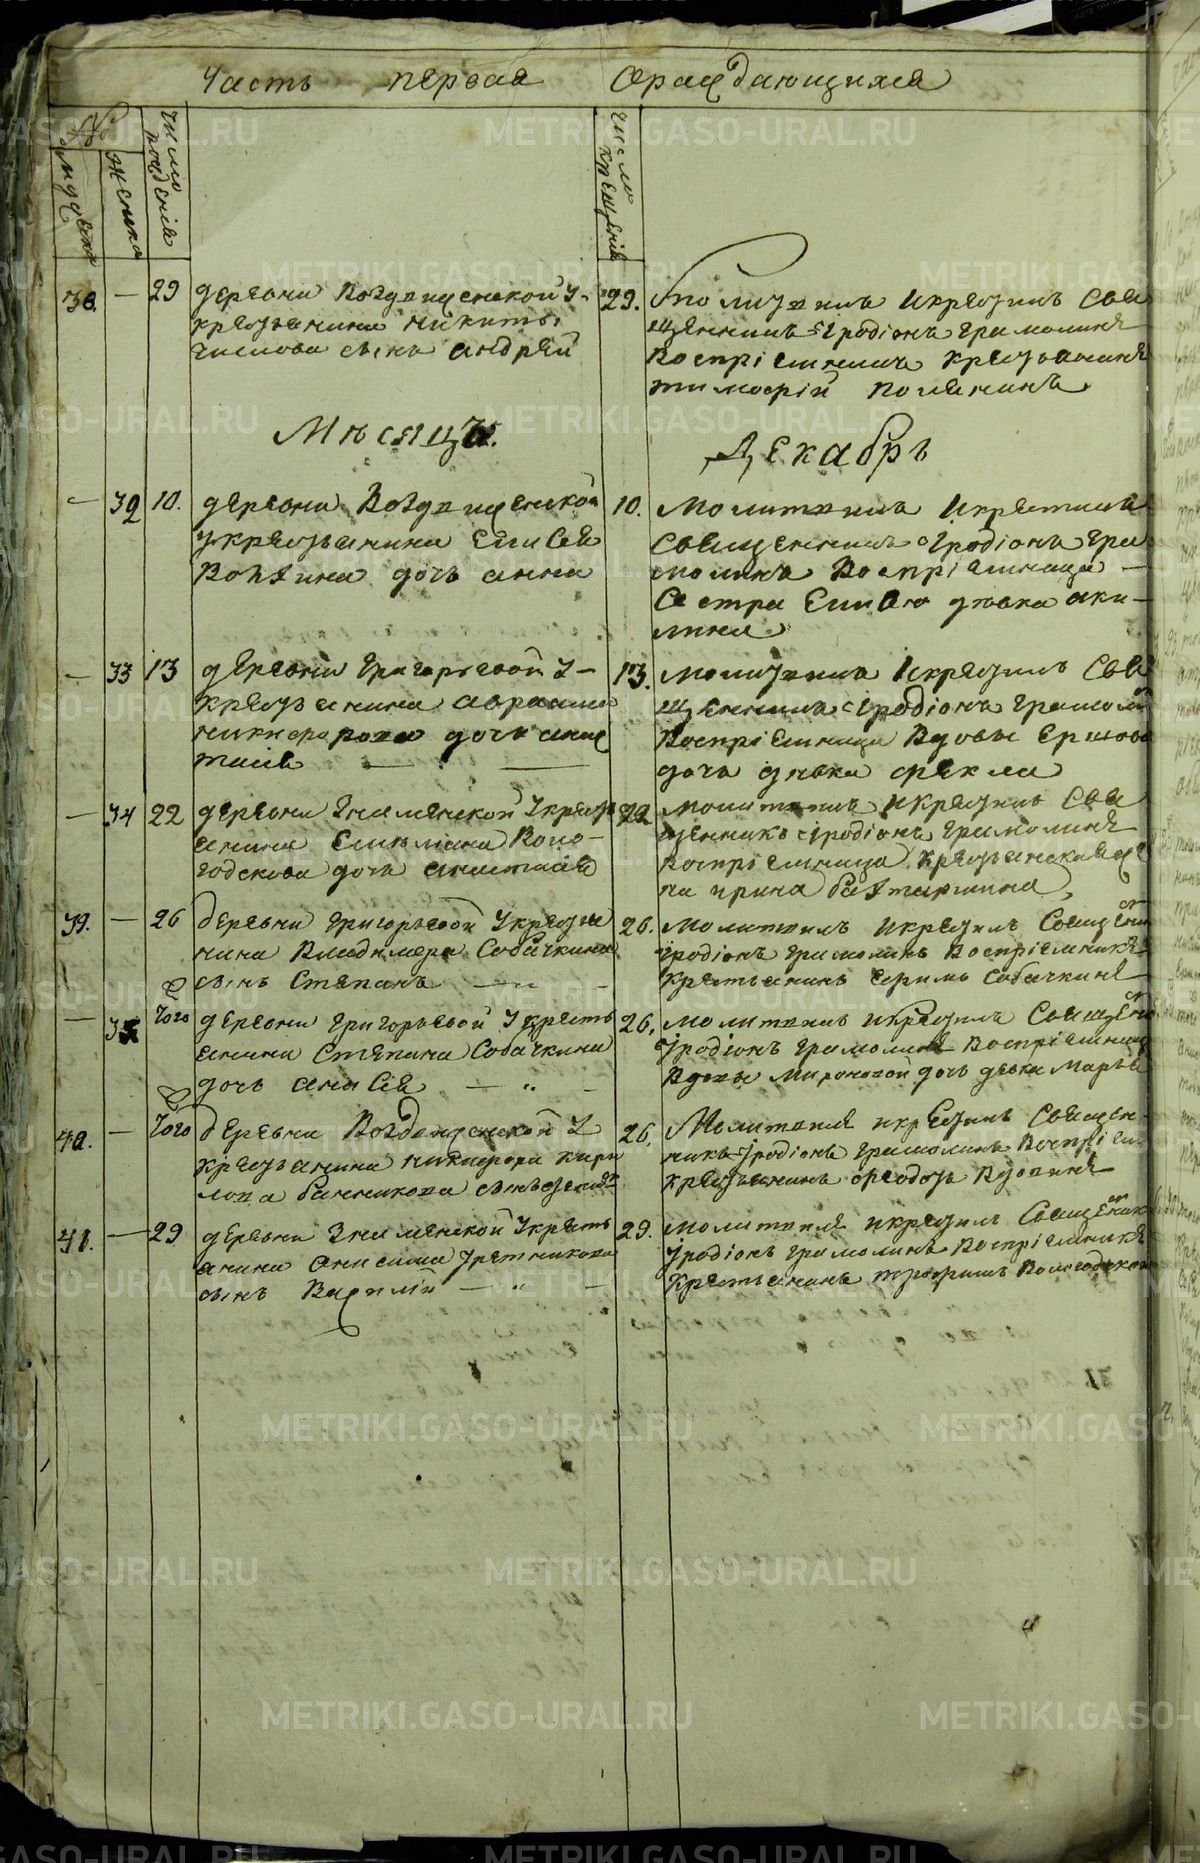 Часть первая О раждающихся
№
мужска
женска
число рождения
число крещения
38. — 29 деревни Воздвиженской у
крестьянина Никиты
Числова сынъ Андрей
29. молитвилъ и крестилъ свя
щенникъ Iродiонъ Грамолинъ
Воспрiемникъ крестьянинъ
Тимофей Полѣнинъ
Мѣсяцъ. Декабрь
— 32 10. деревни Воздвиженской
у крестьянина Елисея
дочь Анна
10. Молитвилъ и крестилъ
священникъ Iродiонъ Гра
молинъ Воспрiемница —
сестра Елисею дѣвка Аки—
лина
— 33 13 деревни Григорьевой у—
крестьянина Авраама
Никифорова дочь Анас
тасiя — —
13. молитвилъ и крестилъ свя
щенникъ Iродiонъ Грамоли
Воспрiемница вдовы Ершова
дочь дѣвка Фекла
— 34 22 деревни Знаменской у крест
янина Емельяна Воло—
годскова дочь Анастасiя
22 молитвилъ и крестилъ свя
щенникъ Iродiонъ Грамолинъ
воспрiемница крестьянская же
на Ирина
39. — 26 деревни Григорьевой у кресть
нина Владимера Собачкина
сынъ Степанъ — „ —
26. молитвилъ и крестилъ священ
Iродiонъ Грамолинъ Воспрiемникъ
крестьянинъ Ефимъ Собачкинъ
— 35 того деревни Григорьевой у кресть
янина Степана Собачкина
дочь Анисiя — „ —
26. молитвилъ и крестилъ священ
Iродiонъ Грамолинъ Воспрiемница
вдовы Мироновой дочь девка Марья
40. — того деревни Воздвиженской у
крестьянина Никифора Кири
лова Банникова сынъ
26. Молитвилъ и крестилъ священ
никъ Iродiонъ Грамолинъ Воспрiем
крестьянинъ Феодотъ Вдовинъ
41. — 29 деревни Знаменской у кресть
янина Анисима Урет­никова
сынъ Василiй — „ —
29. молитвилъ и крестилъ священик
Iродiонъ Грамолинъ Воспрiемникъ
крестьянинъ Трофимъ Вологодской